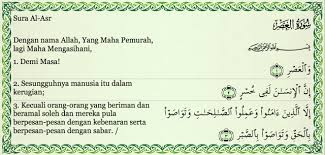 Sura Al-Asr
سُورَةُ الْعَصْرِ
Dengan nama Allah, Yang Maha Pemurah,
lagi Maha Mengasihani,
1. Demi Masa!
وَالْعَصْرِ ﴿١﴾
2. Sesungguhnya manusia itu dalam
kerugian;
إِنَّ الْإِنسَٰنَ لَفِى خُسْرٍ ﴿٢﴾
3. Kecuali orang-orang yang beriman dan
beramal soleh dan mereka pula
berpesan-pesan dengan kebenaran serta
berpesan-pesan dengan sabar. /
إِلَّا الَّذِينَ ءَامَنُوا وَعَمِلُوا الصَّٰلِحَٰتِ وَتَوَاصَوْا
بِالْحَقِّ وَتَوَاصَوْا بِالصَّبْرِ ﴿٣﴾